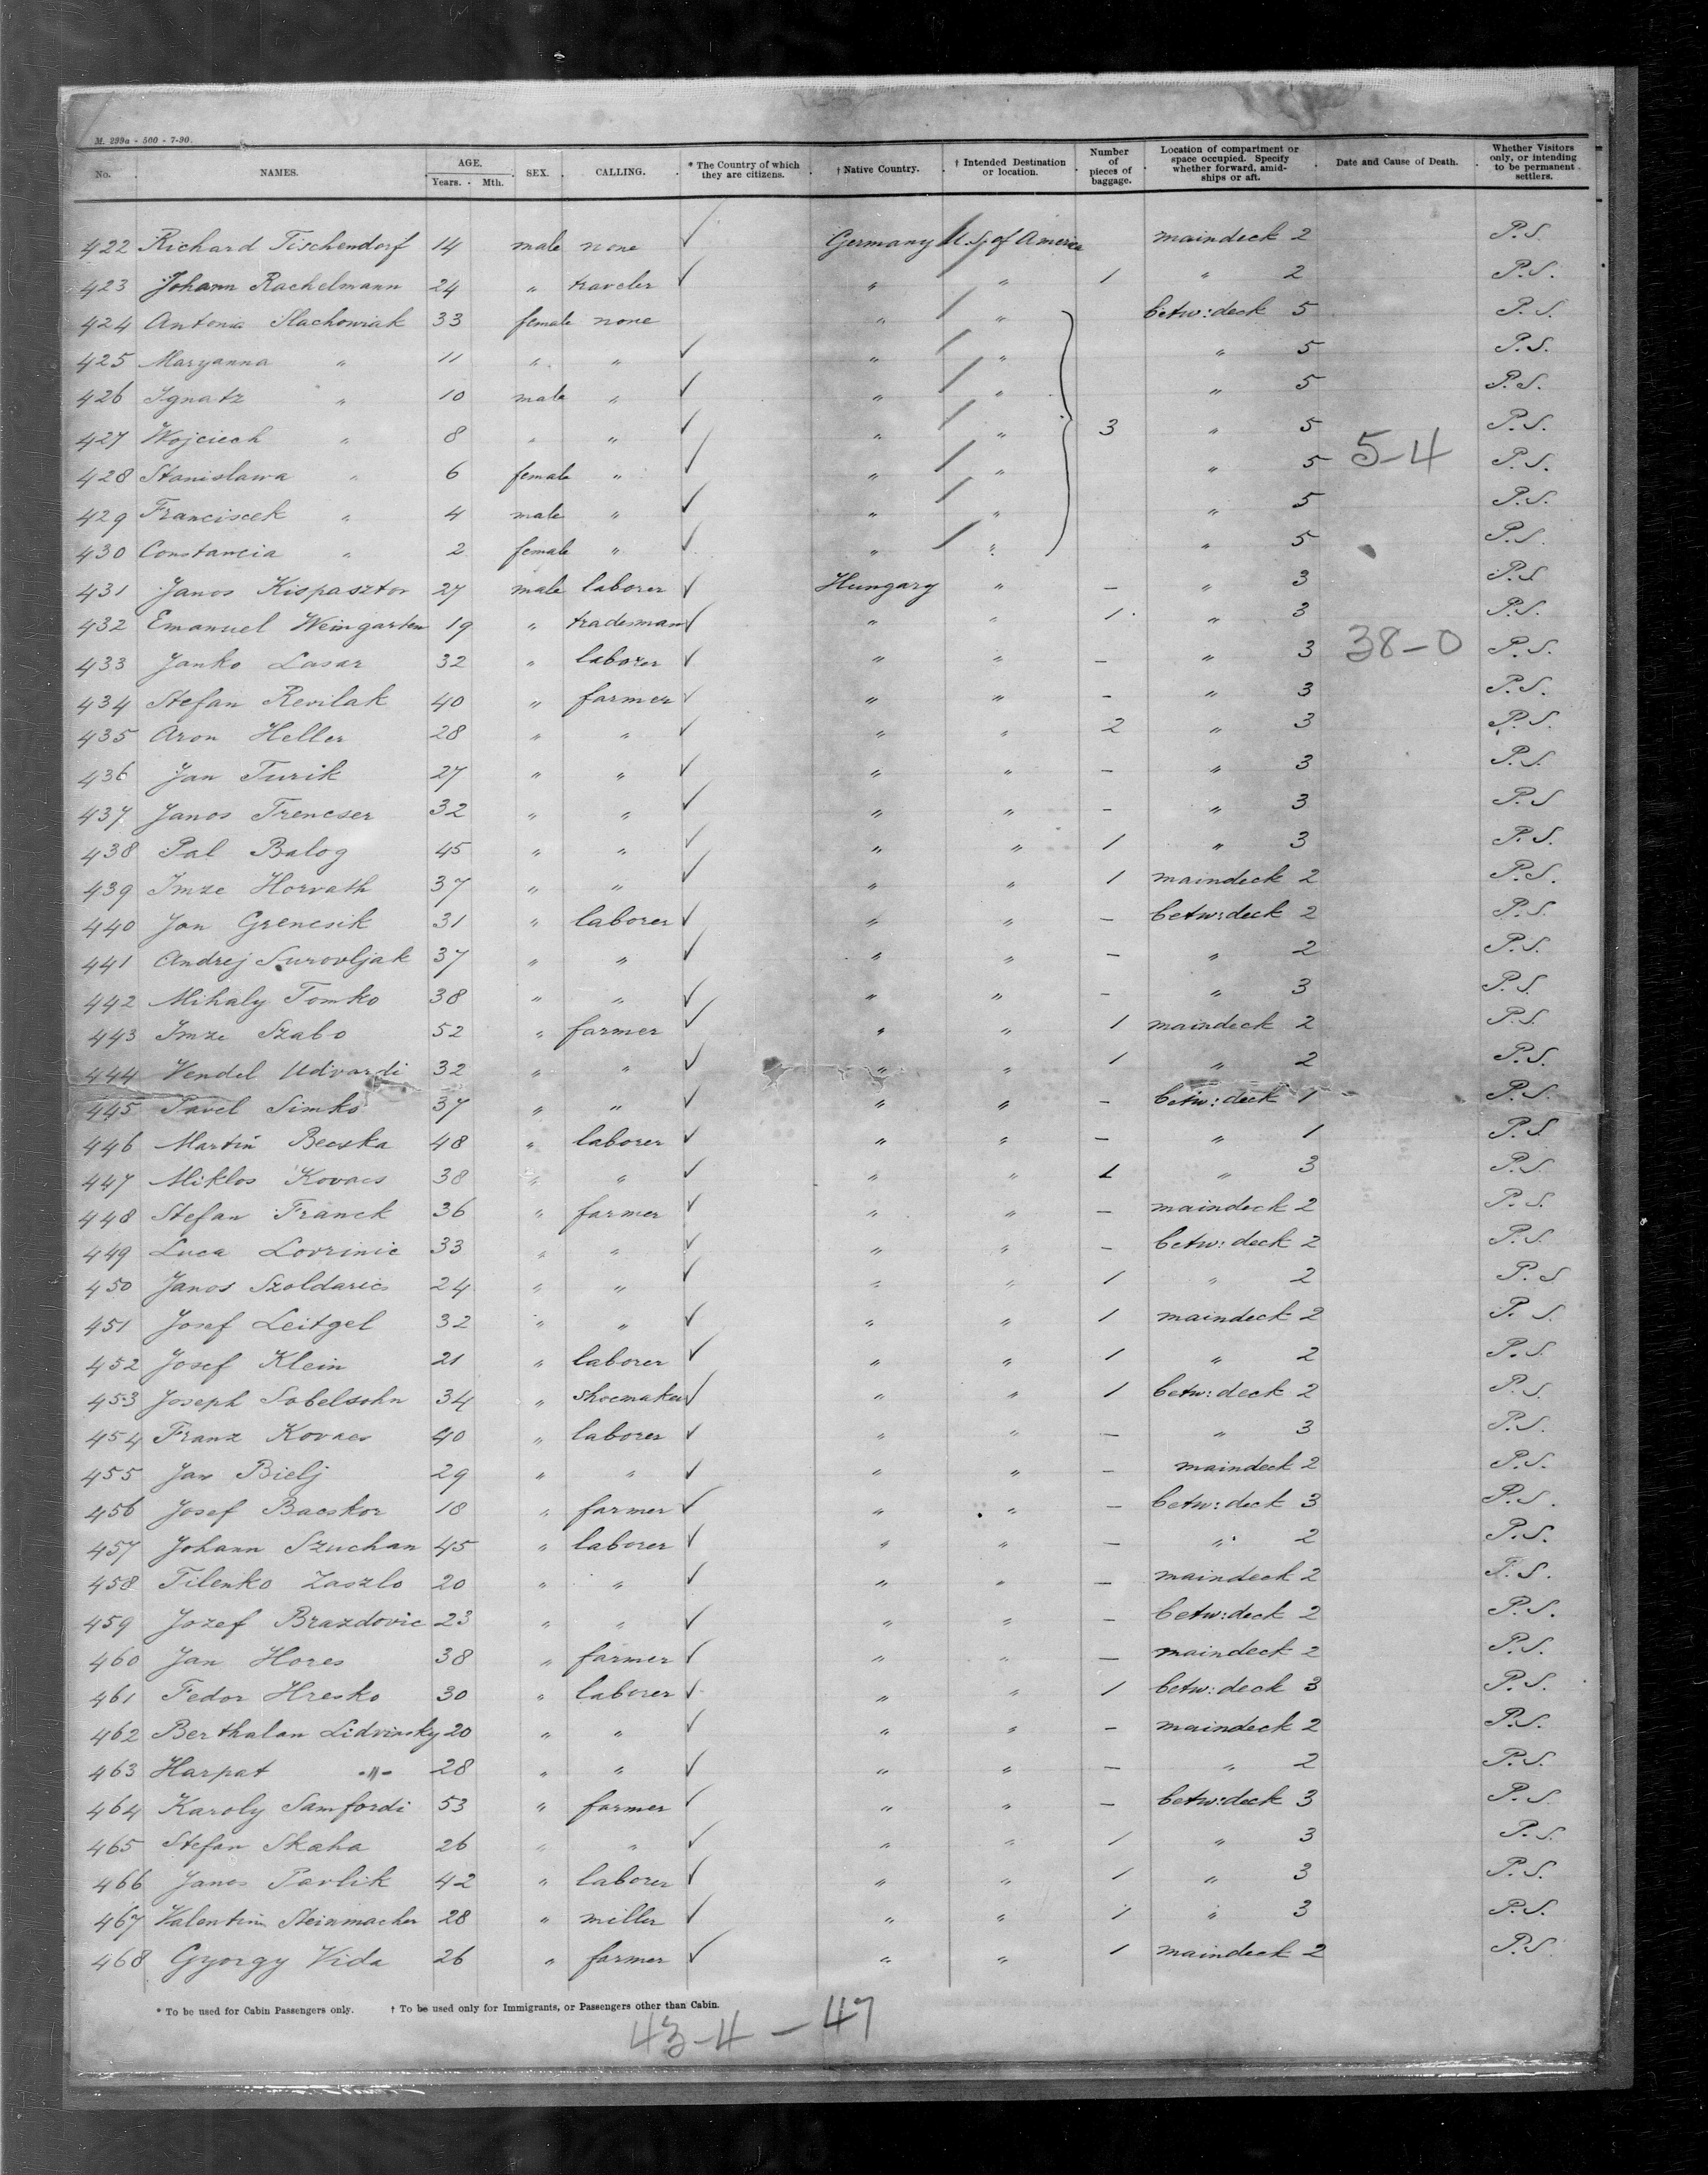 M. 299a - 500 - 7-90.
No. NAMES. AGE. Years. Mth. SEX. CALLING. * The Country of which they are citizens. † Native Country. † Intended Destination or location. Number of pieces of baggage. Location of compartment or space occupied. Specify whether forward, amidships or aft. Date and Cause of Death. Whether Visitors only, or intending to be permanent settlers.
422 Richard Tischendorf 14 male none ✓ Germany U.S. of America maindeck 2 P.S.
423 Johann Rachelmann 24 " traveler ✓ " " 1 " 2 P.S.
424 Antonia Stachowiak 33 female none " " betw: deck 5 P.S.
425 Maryanna " 11 " " ✓ " " " 5 P.S.
426 Ignatz " 10 male " ✓ " " " 5 P.S.
427 Wojciech " 8 " " ✓ " " 3 " 5 P.S.
428 Stanislawa " 6 female " ✓ " " " 5 5-4 P.S.
429 Franciscek " 4 male " ✓ " " " 5 P.S.
430 Constancia " 2 female " ✓ " " " 5 P.S.
431 Janos Kispasztor 27 male laborer ✓ Hungary " — " 3 P.S.
432 Emanuel Weingarten 19 " tradesman ✓ " " 1 " 3 P.S.
433 Janko Lasar 32 " laborer ✓ " " — " 3 38-0 P.S.
434 Stefan Revilak 40 " farmer ✓ " " — " 3 P.S.
435 Aron Heller 28 " " ✓ " " 2 " 3 P.S.
436 Jan Turik 27 " " ✓ " " — " 3 P.S.
437 Janos Trencser 32 " " ✓ " " — " 3 P.S.
438 Pal Balog 45 " " ✓ " " 1 " 3 P.S.
439 Imre Horvath 37 " " ✓ " " 1 maindeck 2 P.S.
440 Jan Grencsik 31 " laborer ✓ " " — betw: deck 2 P.S.
441 Andrej Surovljak 37 " " ✓ " " — " 2 P.S.
442 Mihaly Tomko 38 " " ✓ " " — " 3 P.S.
443 Imre Szabo 52 " farmer ✓ " " 1 maindeck 2 P.S.
444 Vendel Udvardi 32 " " ✓ " " 1 " 2 P.S.
445 Pavel Simko 37 " " ✓ " " — betw: deck 1 P.S.
446 Martin Becska 48 " laborer ✓ " " — " 1 P.S.
447 Miklos Kovacs 38 " " ✓ " " 1 " 3 P.S.
448 Stefan Franek 36 " farmer ✓ " " — maindeck 2 P.S.
449 Luca Lovrinic 33 " " ✓ " " — betw: deck 2 P.S.
450 Janos Szoldarics 24 " " ✓ " " 1 " 2 P.S.
451 Josef Leitgel 32 " " ✓ " " 1 maindeck 2 P.S.
452 Josef Klein 21 " laborer ✓ " " 1 " 2 P.S.
453 Joseph Sobelsohn 34 " shoemaker ✓ " " 1 betw: deck 2 P.S.
454 Franz Kovacs 40 " laborer " " — " 3 P.S.
455 Jan Bielj 29 " " ✓ " " — maindeck 2 P.S.
456 Josef Bacskor 18 " farmer ✓ " " — betw: deck 3 P.S.
457 Johann Szuchan 45 " laborer ✓ " " — " 2 P.S.
458 Tilenko Laszlo 20 " " ✓ " " — maindeck 2 P.S.
459 Jozef Brazdovic 23 " " ✓ " " — betw: deck 2 P.S.
460 Jan Hores 38 " farmer ✓ " " — maindeck 2 P.S.
461 Fedor Hresko 30 " laborer ✓ " " 1 betw: deck 3 P.S.
462 Berthalan Lidvinsky 20 " " ✓ " " — maindeck 2 P.S.
463 Harpat -"- 28 " " ✓ " " — " 2 P.S.
464 Karoly Samfordi 53 " farmer ✓ " " — betw: deck 3 P.S.
465 Stefan Skaha 26 " " ✓ " " 1 " 3 P.S.
466 Janos Pavlik 42 " laborer ✓ " " 1 " 3 P.S.
467 Valentin Steinmacher 28 " miller ✓ " " 1 " 3 P.S.
468 Gyorgy Vida 26 " farmer ✓ " " 1 maindeck 2 P.S.
* To be used for Cabin Passengers only. † To be used only for Immigrants, or Passengers other than Cabin.
43-4-47